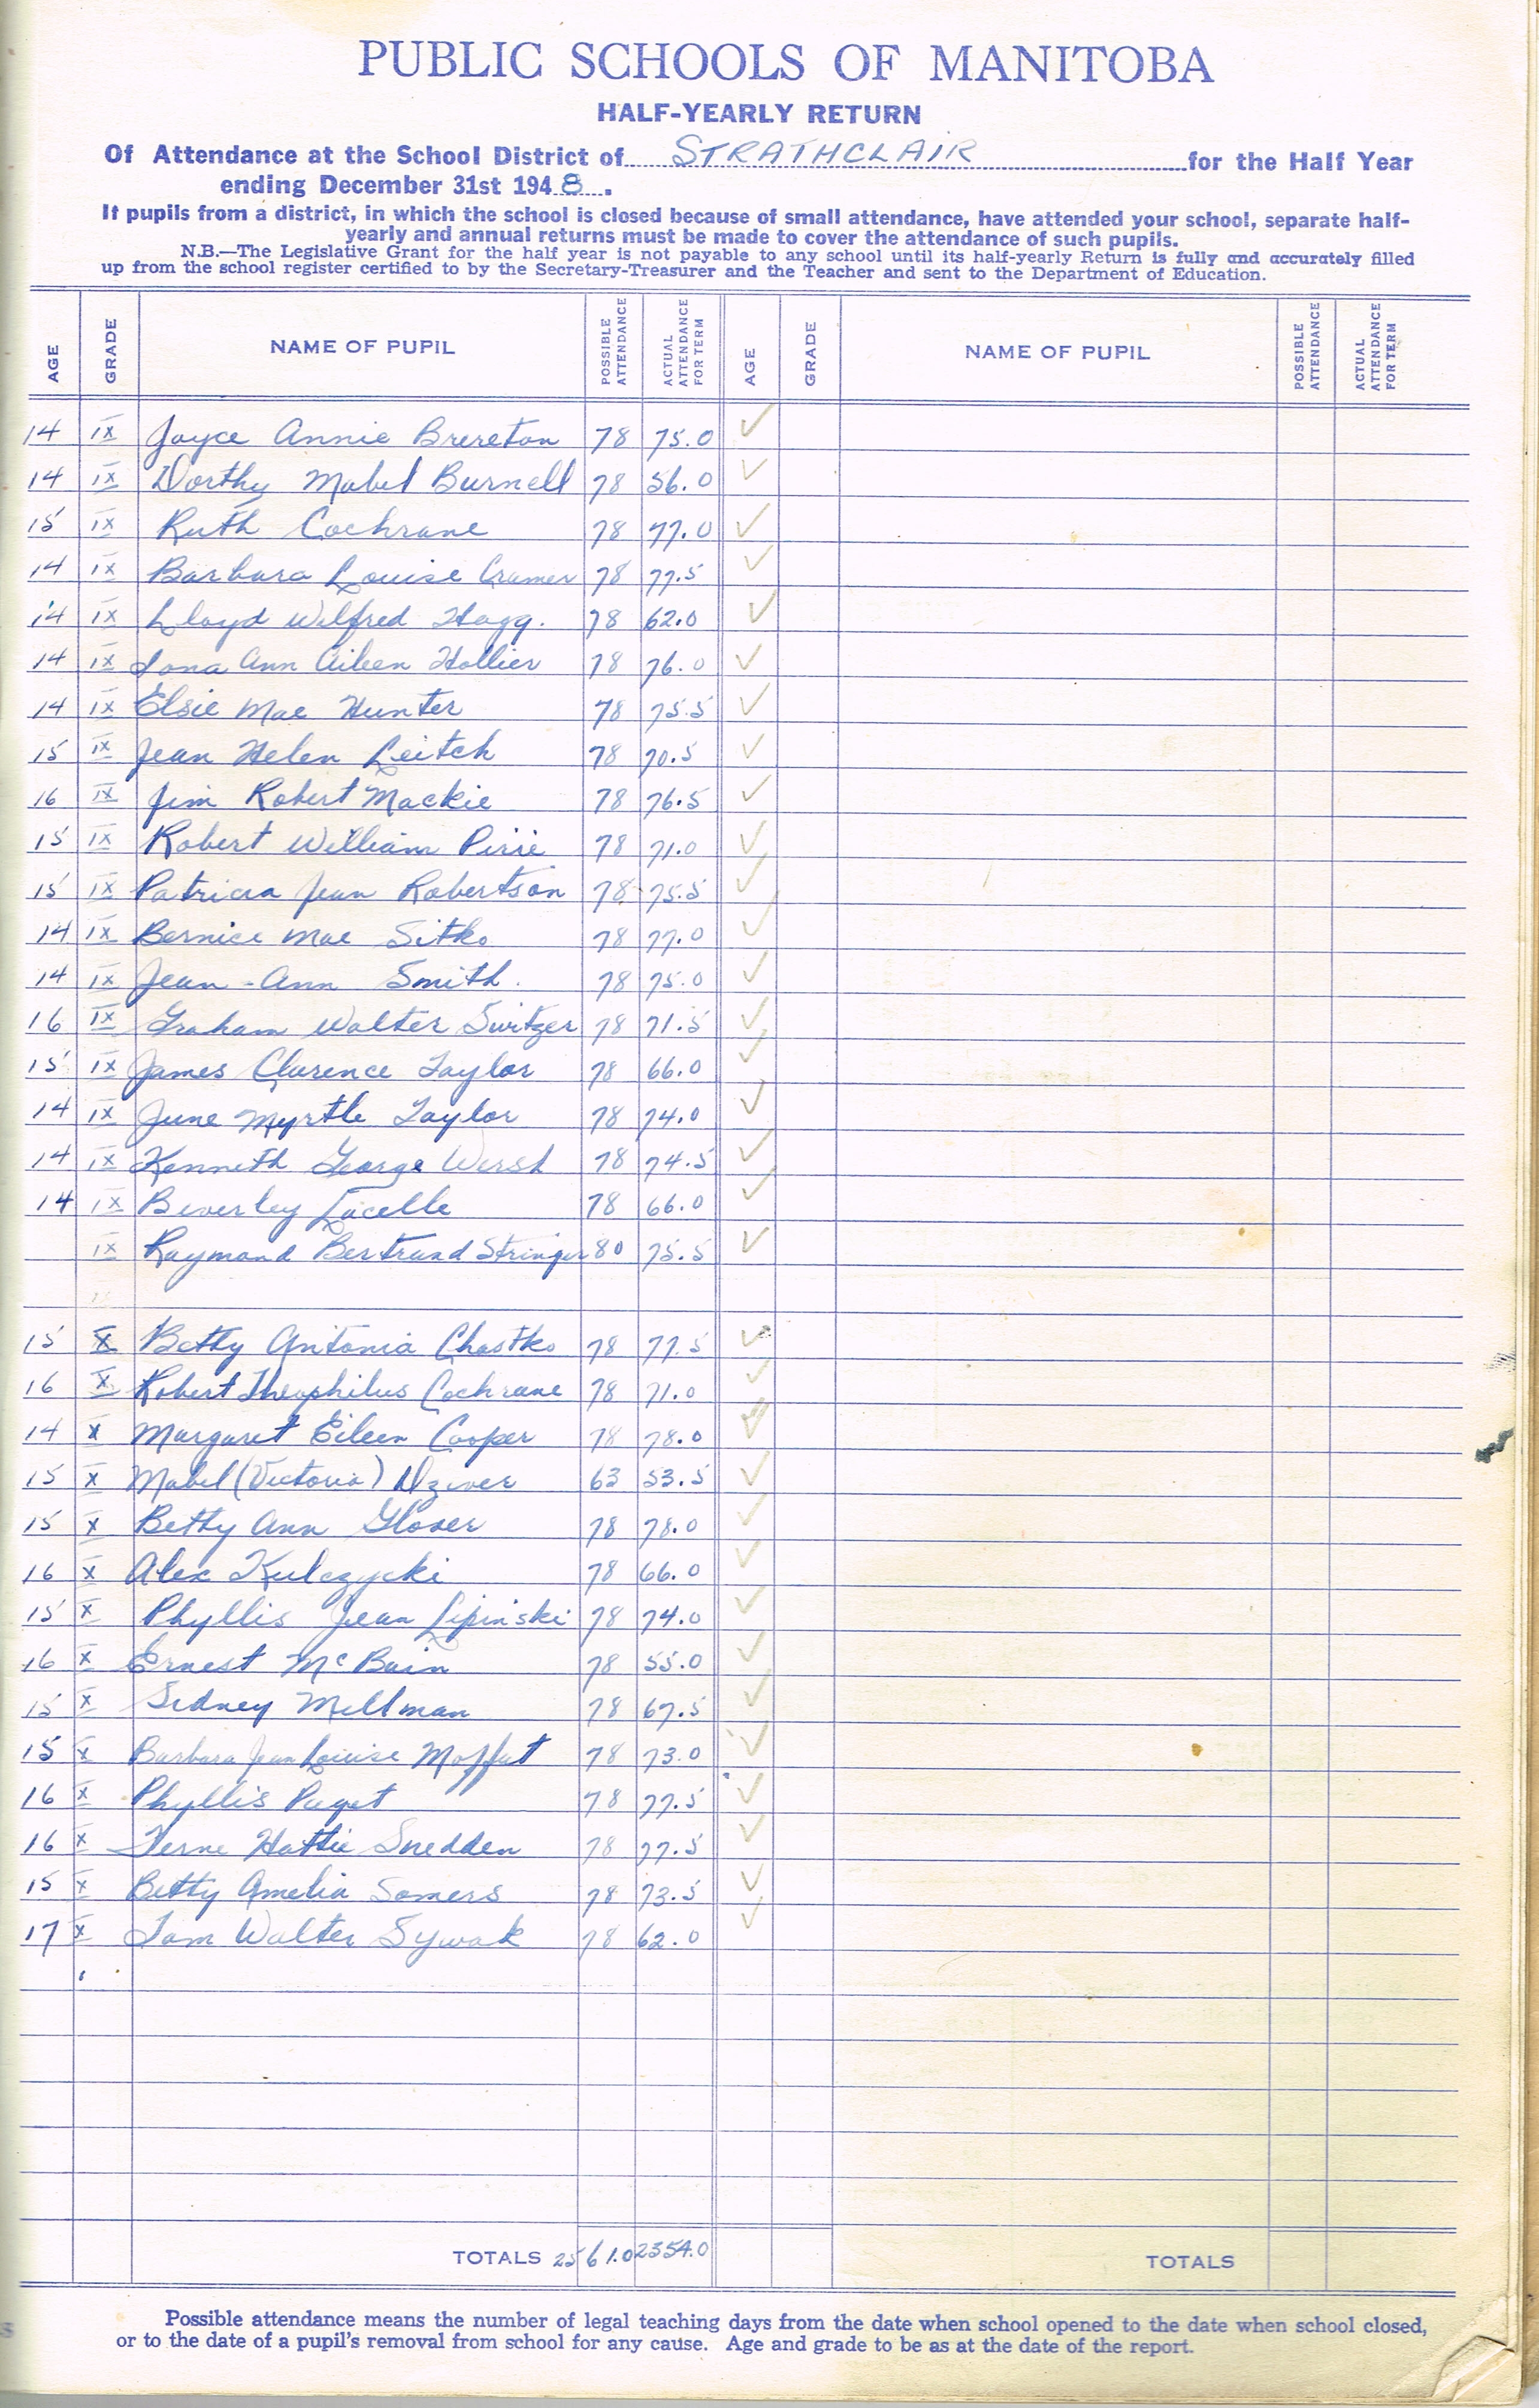 PUBLIC SCHOOLS OF MANITOBA
HALF-YEARLY RETURN
Of Attendance at the School District of STRATHCLAIR for the Half Year
ending December 31st 1948.
If pupils from a district, in which the school is closed because of small attendance, have attended your school, separate half-
yearly and annual returns must be made to cover the attendance of such pupils.
N.B.—The Legislative Grant for the half year is not payable to any school until its half-yearly Return is fully and accurately filled
up from the school register certified to by the Secretary-Treasurer and the Teacher and sent to the Department of Education.
AGE GRADE NAME OF PUPIL POSSIBLE ATTENDANCE ACTUAL ATTENDANCE FOR TERM AGE GRADE NAME OF PUPIL POSSIBLE ATTENDANCE ACTUAL ATTENDANCE FOR TERM
14 IX Joyce Annie Brereton 78 75.0 ✓
14 IX Dorthy Mabel Burnell 78 56.0 ✓
15 IX Ruth Cochrane 78 77.0 ✓
14 IX Barbara Louise Cramer 78 77.5 ✓
14 IX Lloyd Wilfred Hagg. 78 62.0 ✓
14 IX Iona Ann Aileen Hollier 78 76.0 ✓
14 IX Elsie Mae Hunter 78 75.5 ✓
15 IX Jean Helen Leitch 78 70.5 ✓
16 IX Jim Robert Mackie 78 76.5 ✓
15 IX Robert William Pirie 78 71.0 ✓
15 IX Patricia Jean Robertson 78 75.5 ✓
14 IX Bernice Mae Sitko 78 77.0 ✓
14 IX Jean-Ann Smith. 78 75.0 ✓
16 IX Graham Walter Switzer 78 71.5 ✓
15 IX James Clarence Taylor 78 66.0 ✓
14 IX June Myrtle Taylor 78 74.0 ✓
14 IX Kenneth George 78 74.5 ✓
14 IX Beverley Lacelle 78 66.0 ✓
IX Raymond Bertrand Stringer 80 75.5 ✓
15 X Betty Antonia Chastko 78 77.5 ✓
16 X Robert Theophilus Cochrane 78 71.0 ✓
14 X Margaret Eileen Cooper 78 78.0 ✓
15 X Mabel (Victoria) Dziver 63 53.5 ✓
15 X Betty Ann Glover 78 78.0 ✓
16 X Alex Kulczycki 78 66.0 ✓
15 X Phyllis Jean Lipinski 78 74.0 ✓
16 X Ernest McBain 78 55.0 ✓
15 X Sidney Millman 78 67.5 ✓
15 X Barbara Jean Louise Moffat 78 73.0 ✓
16 X Phyllis Paget 78 77.5 ✓
16 X Ferne Hattie Snedden 78 77.5 ✓
15 X Betty Amelia Somers 78 73.5 ✓
17 X Tom Walter Sywak 78 62.0 ✓
TOTALS 2561.0 2354.0 TOTALS
Possible attendance means the number of legal teaching days from the date when school opened to the date when school closed,
or to the date of a pupil's removal from school for any cause. Age and grade to be as at the date of the report.